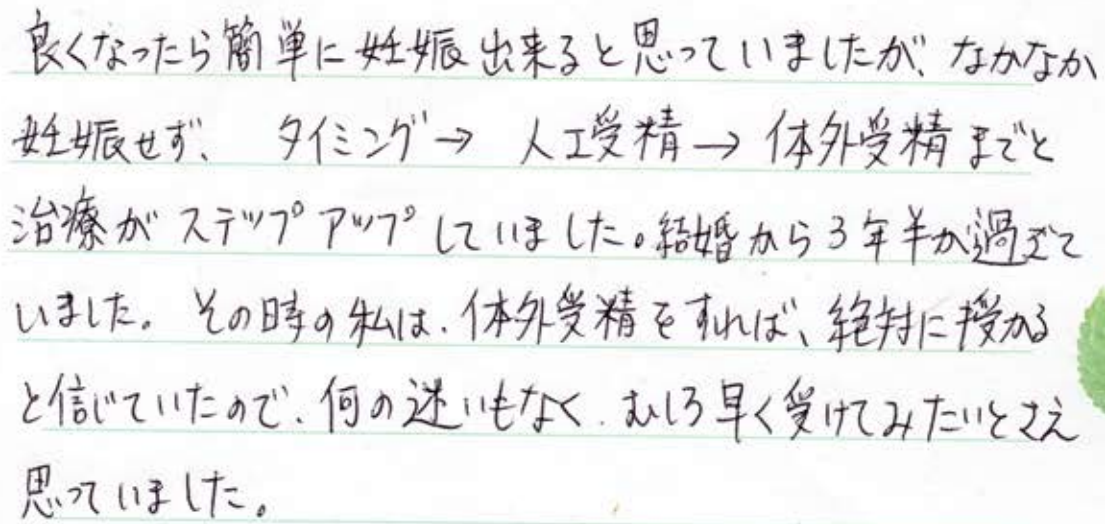 良くなったら簡単に妊娠出来ると思っていましたが、なかなか
妊娠せず、 タイミング→ 人工受精→ 体外受精までと
治療がステップアップしていました。結婚から3年半が過ぎて
いました。 その時の私は、体外受精をすれば、絶対に授かる
と信じていたので、何の迷いもなく、むしろ早く受けてみたいとさえ
思っていました。